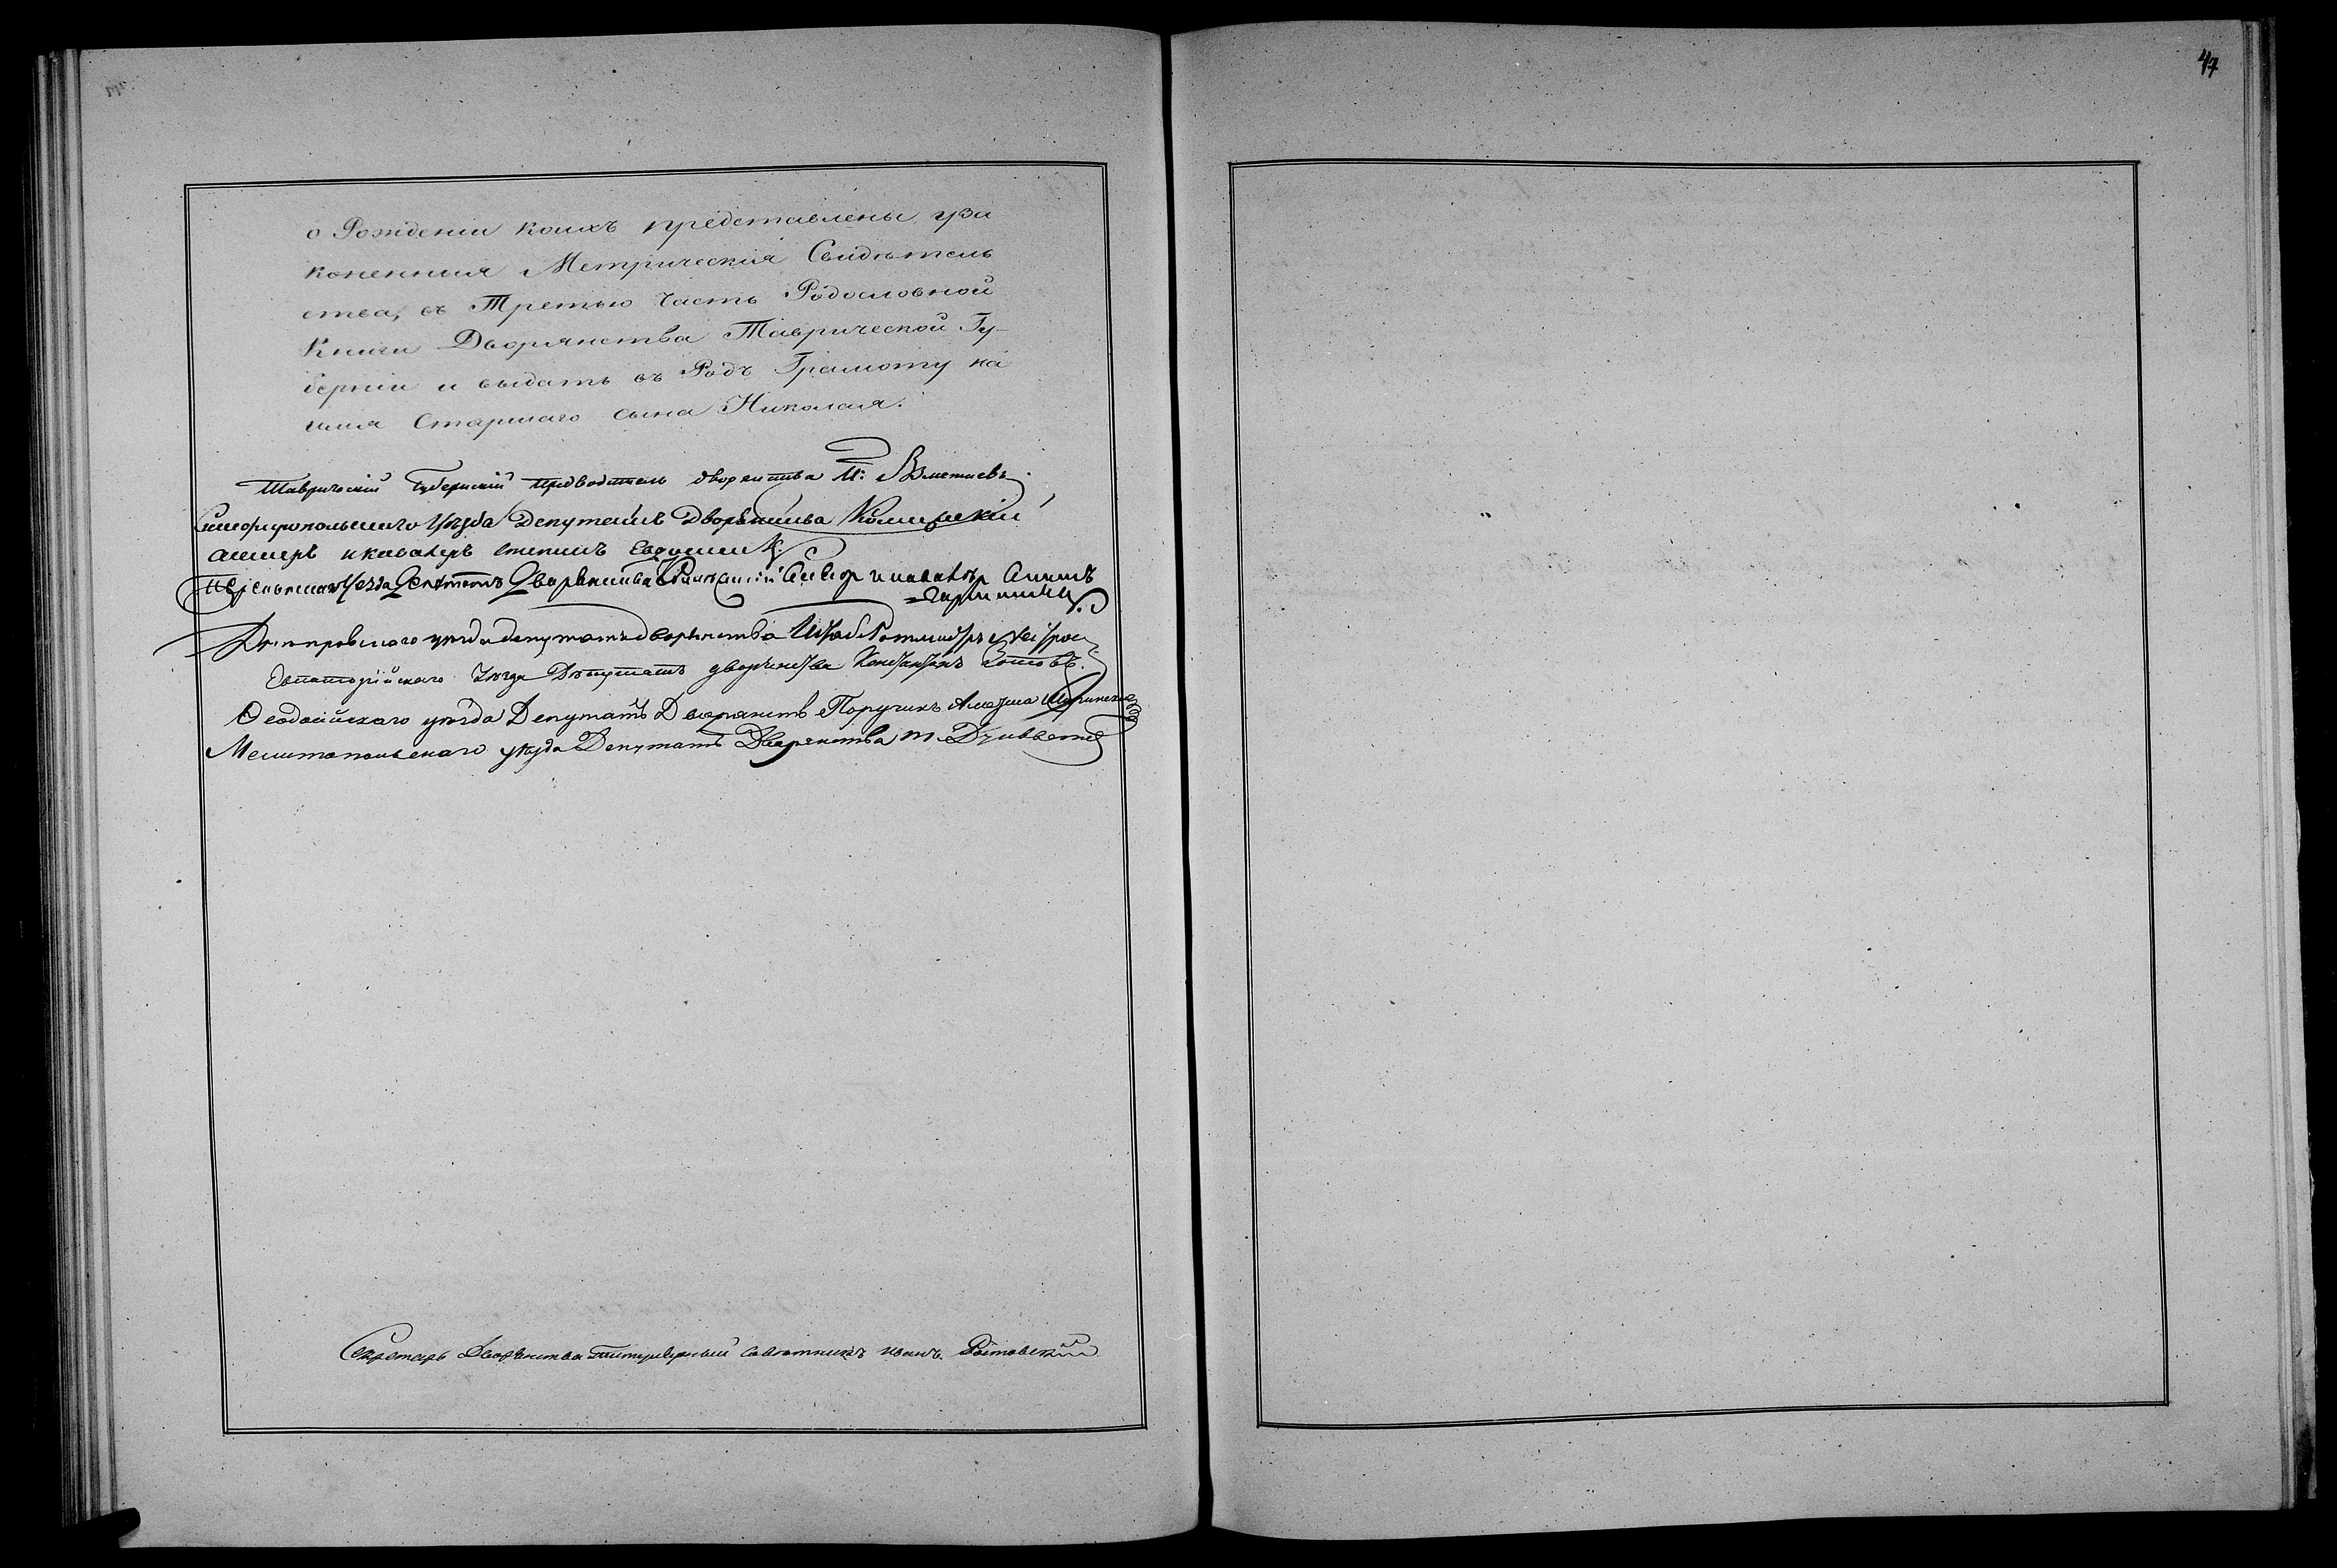 о Рожденіи коихъ представлены уза
коненныя Метрическія Свидѣтель
ства, въ Третью Часть Родословной
Книги Дворянства Таврической Гу-
берніи и выдать въ Родъ Грамоту на
имя Старшаго сына Николая.
Таврическій Губернскій предводитель дворянства
Симферопольскаго уѣзда Депутатъ Дворянства Коллежскій
и кавалеръ
уѣзда Депутатъ Дворянства и кавалеръ
Днѣпровскаго уѣзда депутатъ дворянства Штабъ Ротмистръ
Евпаторійскаго Уѣзда Депутатъ дворянства Константинъ
Ѳеодосійскаго уѣзда Депутатъ Дворянств Поручикъ
Мелитопольскаго уѣзда Депутатъ Дворянства
Секретарь Дворянства Титулярный Совѣтникъ Иванъ Ростовскій
47